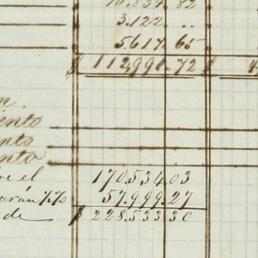 10.837 82
3.122 ..
5.617.65
$ 112,990.72 $ 4
ento
nto
nto
el 170.534.03
57.999.27
de $ 228.533 30